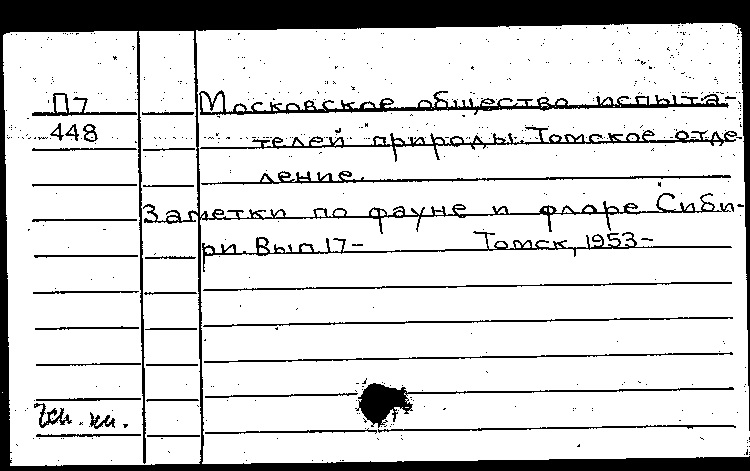 П7 Московское общество испыта-
448 телей природы. Томское отде
ление.
Заметки по фауне и флоре Сиби-
ри. Вып. 17- Томск, 1953-